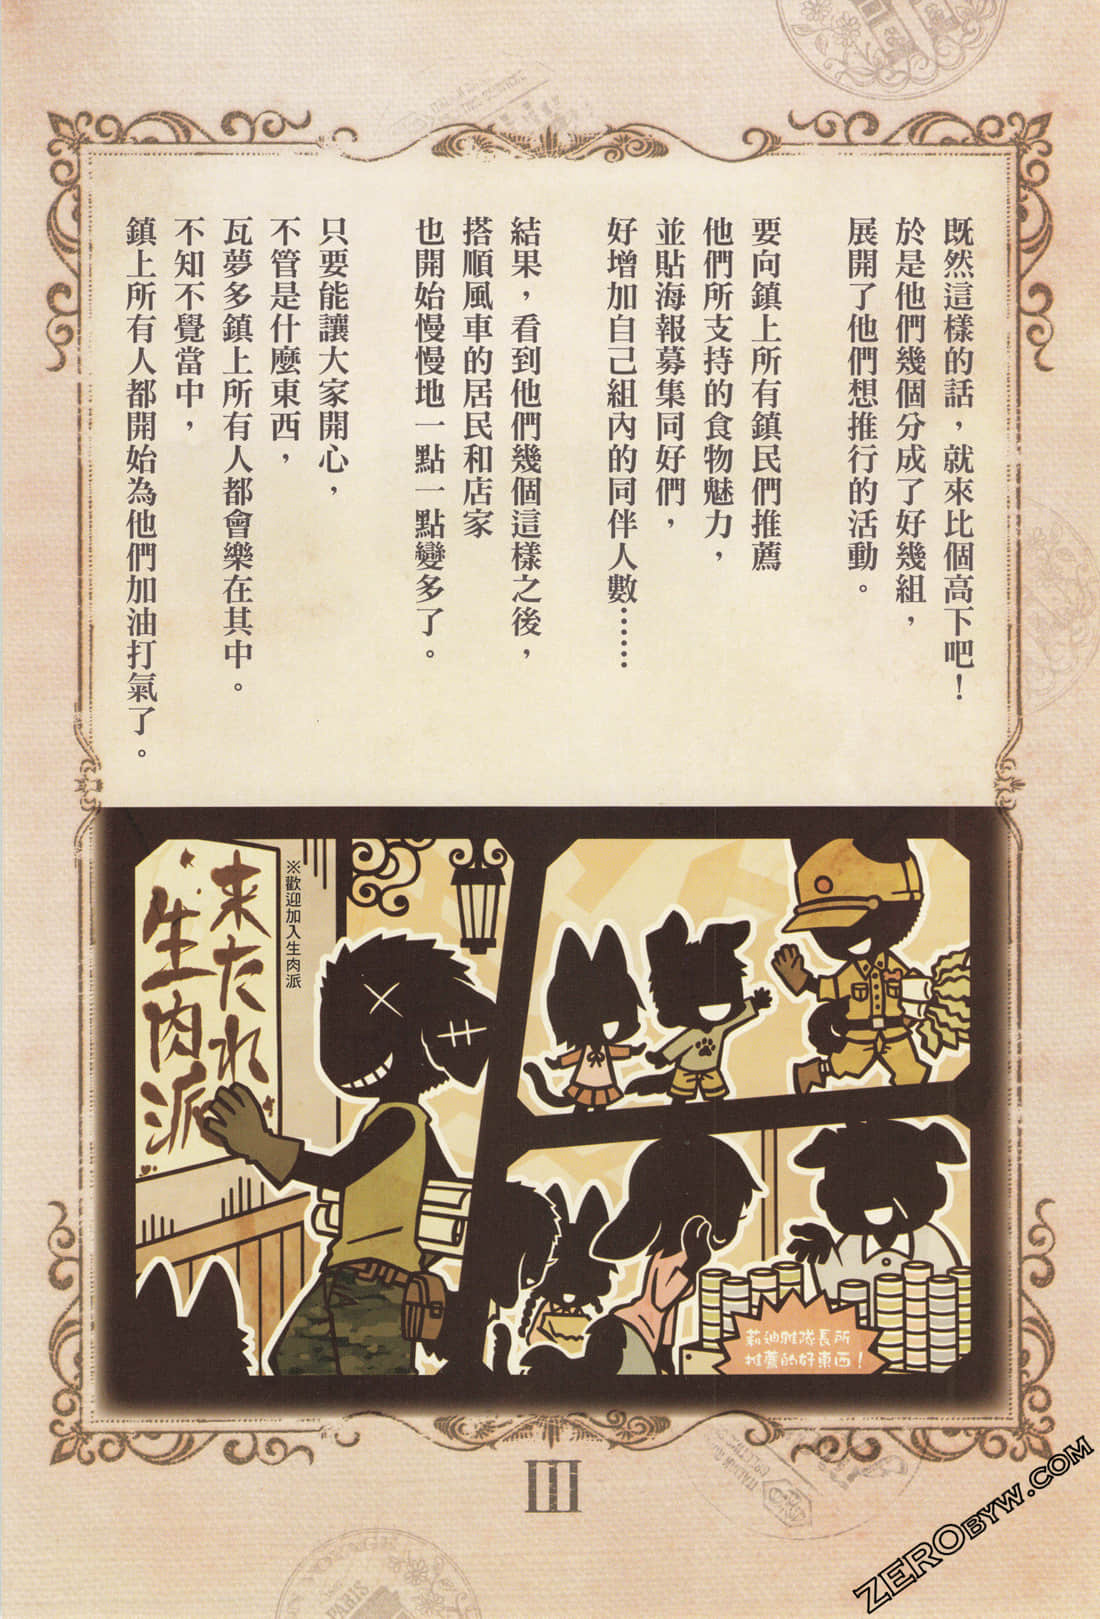 既然這樣的話，就來比個高下吧！
於是他們幾個分成了好幾組，
展開了他們想推行的活動。
要向鎮上所有鎮民們推薦
他們所支持的食物魅力，
並貼海報募集同好們，
好增加自己組內的同伴人數……
結果，看到他們幾個這樣之後，
搭順風車的居民和店家
也開始慢慢地一點一點變多了。
只要能讓大家開心，
不管是什麼東西，
瓦夢多鎮上所有人都會樂在其中。
不知不覺當中，
鎮上所有人都開始為他們加油打氣了。
※歡迎加入生肉派
来たれ
生肉派
莉迪雅隊長所
推薦的好東西！
III
ZEROBYW.COM
PARIS